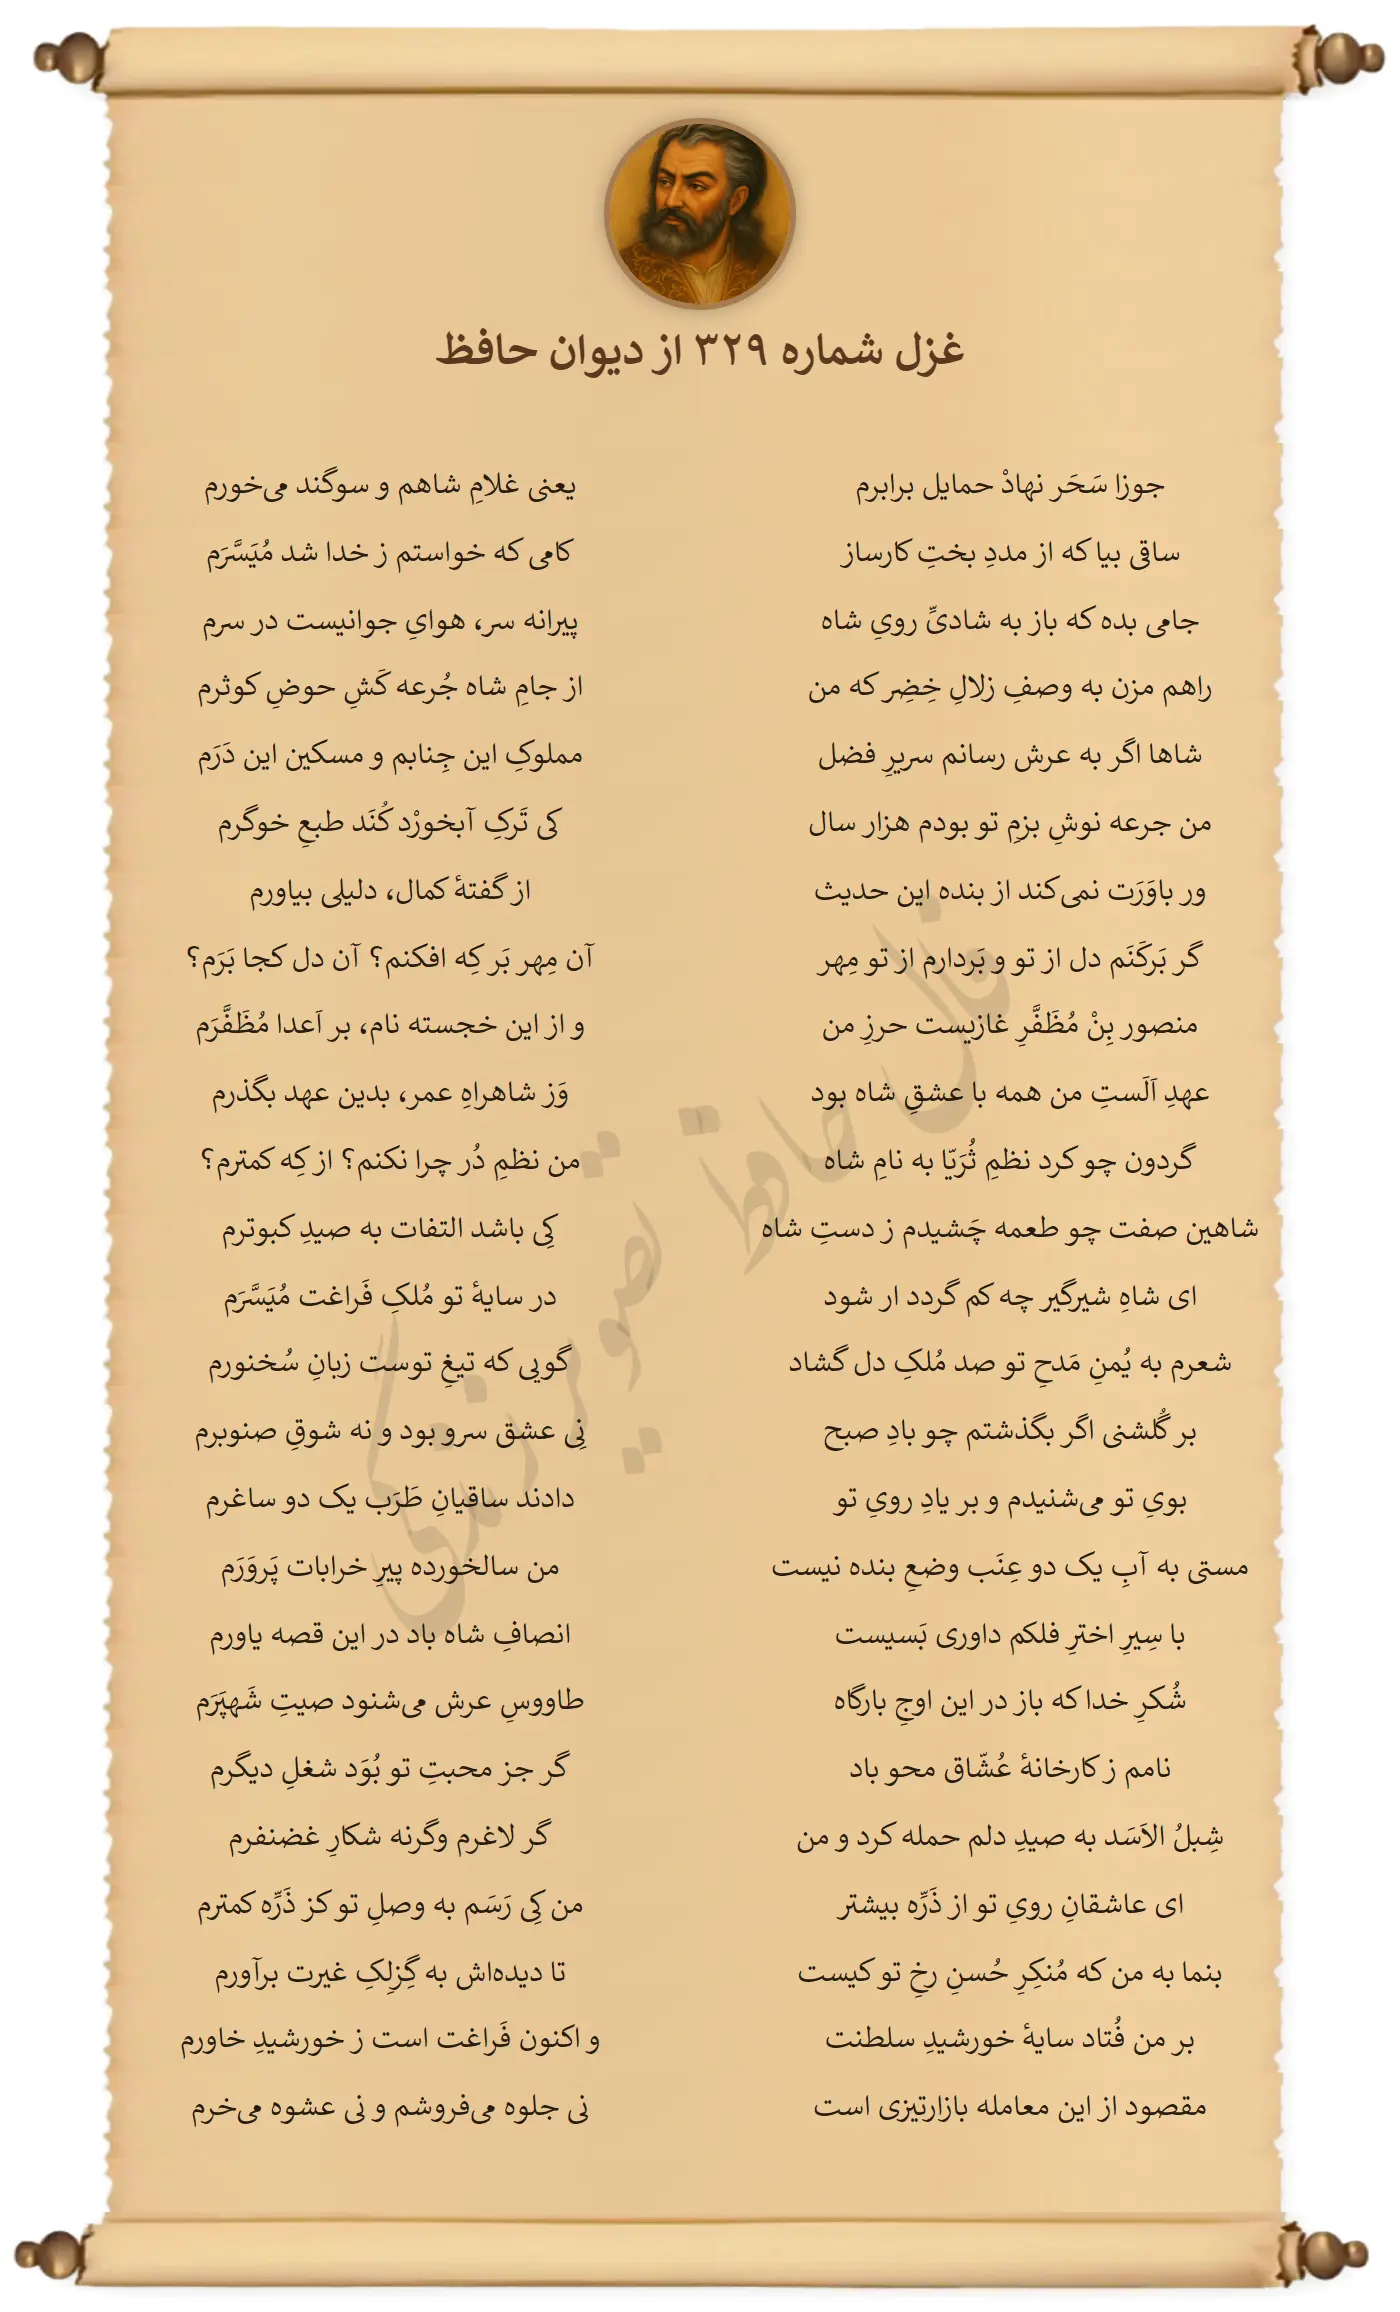 غزل شماره ۳۲۹ از دیوان حافظ
جوزا سَحَر نهادْ حمایل برابرم یعنی غلامِ شاهم و سوگند می‌خورم
ساقی بیا که از مددِ بختِ کارساز کامی که خواستم ز خدا شد مُیَسَّرَم
جامی بده که باز به شادیِّ رویِ شاه پیرانه سر، هوایِ جوانیست در سرم
راهم مزن به وصفِ زلالِ خِضِر که من از جامِ شاه جُرعه کَشِ حوضِ کوثرم
شاها اگر به عرش رسانم سریرِ فضل مملوکِ این جِنابم و مسکین این دَرَم
من جرعه نوشِ بزمِ تو بودم هزار سال کی تَرکِ آبخورْد کُنَد طبعِ خوگرم
ور باوَرَت نمی‌کند از بنده این حدیث از گفتهٔ کمال، دلیلی بیاورم
گر بَرکَنَم دل از تو و بَردارم از تو مِهر آن مِهر بَر کِه افکنم؟ آن دل کجا بَرَم؟
منصور بِنْ مُظَفَّرِ غازیست حرزِ من و از این خجسته نام، بر اَعدا مُظَفَّرَم
عهدِ اَلَستِ من همه با عشقِ شاه بود وَز شاهراهِ عمر، بدین عهد بگذرم
گردون چو کرد نظمِ ثُرَیّا به نامِ شاه من نظمِ دُر چرا نکنم؟ از کِه کمترم؟
شاهین صفت چو طعمه چَشیدم ز دستِ شاه کِی باشد التفات به صیدِ کبوترم
ای شاهِ شیرگیر چه کم گردد ار شود در سایهٔ تو مُلکِ فَراغت مُیَسَّرَم
شعرم به یُمنِ مَدحِ تو صد مُلکِ دل گشاد گویی که تیغِ توست زبانِ سُخنورم
بر گُلشنی اگر بگذشتم چو بادِ صبح نِی عشق سرو بود و نه شوقِ صنوبرم
بویِ تو می‌شنیدم و بر یادِ رویِ تو دادند ساقیانِ طَرَب یک دو ساغرم
مستی به آبِ یک دو عِنَب وضعِ بنده نیست من سالخورده پیرِ خرابات پَروَرَم
با سِیرِ اخترِ فلکم داوری بَسیست انصافِ شاه باد در این قصه یاورم
شُکرِ خدا که باز در این اوجِ بارگاه طاووسِ عرش می‌شنود صیتِ شَهپَرَم
نامم ز کارخانهٔ عُشّاق محو باد گر جز محبتِ تو بُوَد شغلِ دیگرم
شِبلُ الاَسَد به صیدِ دلم حمله کرد و من گر لاغرم وگرنه شکارِ غضنفرم
ای عاشقانِ رویِ تو از ذَرِّه بیشتر من کِی رَسَم به وصلِ تو کز ذَرِّه کمترم
بنما به من که مُنکِرِ حُسنِ رخِ تو کیست تا دیده‌اش به گِزلِکِ غیرت برآورم
بر من فُتاد سایهٔ خورشیدِ سلطنت و اکنون فَراغت است ز خورشیدِ خاورم
مقصود از این معامله بازارتیزی است نی جلوه می‌فروشم و نی عشوه می‌خرم
فال حافظ تصویر زندگی